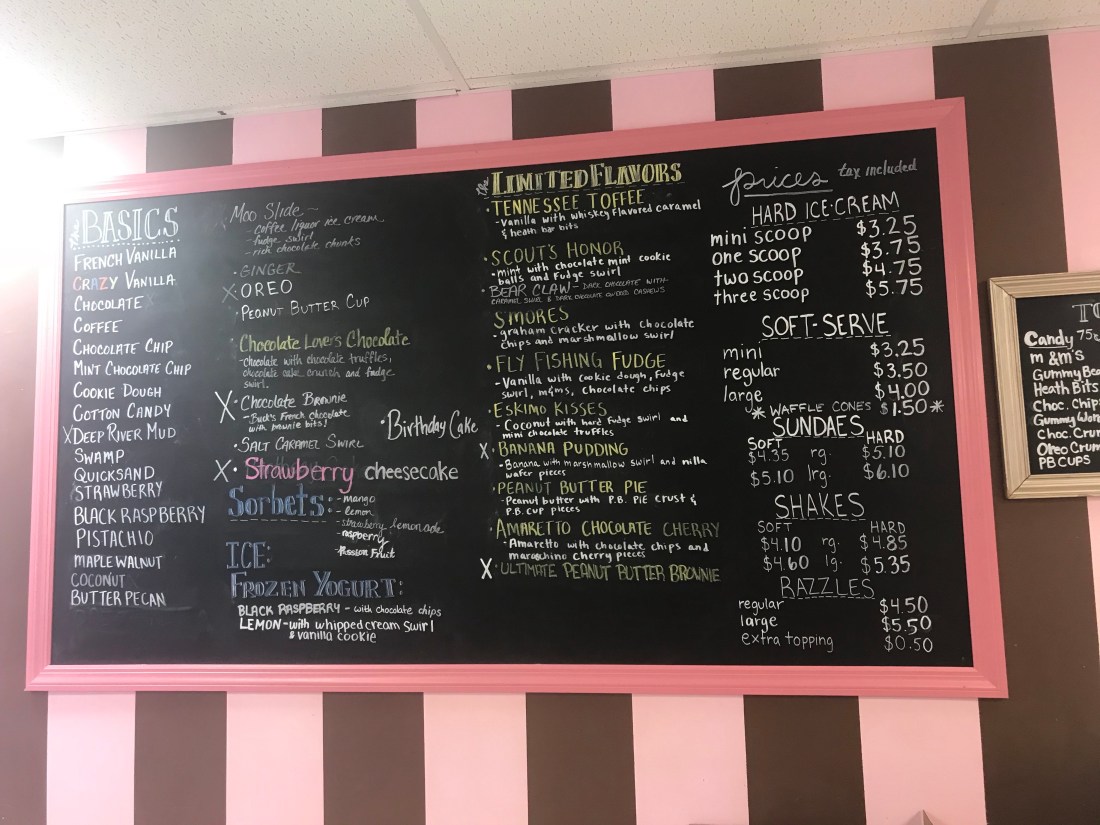 the BASICS
FRENCH VANILLA
CRAZY VANILLA
CHOCOLATE
COFFEE
CHOCOLATE CHIP
MINT CHOCOLATE CHIP
COOKIE DOUGH
COTTON CANDY
X DEEP RIVER MUD
SWAMP
QUICKSAND
STRAWBERRY
BLACK RASPBERRY
PISTACHIO
MAPLE WALNUT
COCONUT
BUTTER PECAN
Moo Slide -
- coffee liquor ice cream
- fudge swirl
- rich chocolate chunks
· GINGER
X · OREO
· PEANUT BUTTER CUP
· Chocolate Lovers Chocolate
- chocolate with chocolate truffles,
chocolate cake crunch and fudge
swirl.
X · Chocolate Brownie
- Buck's French Chocolate
with brownie bits!
· Birthday Cake
· SALT CARAMEL SWIRL
X · Strawberry cheesecake
Sorbets:
- mango
- lemon
- strawberry lemonade
- raspberry
- Passion Fruit
ICE:
FROZEN YOGURT:
BLACK RASPBERRY - with chocolate chips
LEMON - with whipped cream swirl
& vanilla cookie
the LIMITED FLAVORS
· TENNESSEE TOFFEE
- vanilla with whiskey flavored caramel
& heath bar bits
· SCOUT'S HONOR
- mint with chocolate mint cookie
balls and fudge swirl
· BEAR CLAW - DARK CHOCOLATE WITH
CARAMEL SWIRL & DARK CHOCOLATE COVERED CASHEWS
S'MORES
· graham cracker with chocolate
chips and marshmallow swirl
· FLY FISHING FUDGE
- Vanilla with cookie dough, fudge
swirl, m&ms, chocolate chips
· ESKIMO KISSES
- Coconut with hard fudge swirl and
mini chocolate truffles
X · BANANA PUDDING
- Banana with marshmallow swirl and nilla
wafer pieces
· PEANUT BUTTER PIE
- Peanut butter with P.B. Pie crust &
P.B. cup pieces
· AMARETTO CHOCOLATE CHERRY
- Amaretto with chocolate chips and
maraschino cherry pieces
X · ULTIMATE PEANUT BUTTER BROWNIE
prices tax included
HARD ICE-CREAM
mini scoop $3.25
one scoop $3.75
two scoop $4.75
three scoop $5.75
SOFT-SERVE
mini $3.25
regular $3.50
large $4.00
* WAFFLE CONES $1.50 *
SUNDAES
SOFT HARD
$4.35 rg. $5.10
$5.10 lrg. $6.10
SHAKES
SOFT HARD
$4.10 rg. $4.85
$4.60 lg. $5.35
RAZZLES
regular $4.50
large $5.50
extra topping $0.50
TO
Candy 75¢
m &m's
Gummy Bea
Heath Bits
Choc. Chip
Gummy Wor
Choc. Crun
Oreo Crum
PB CUPS